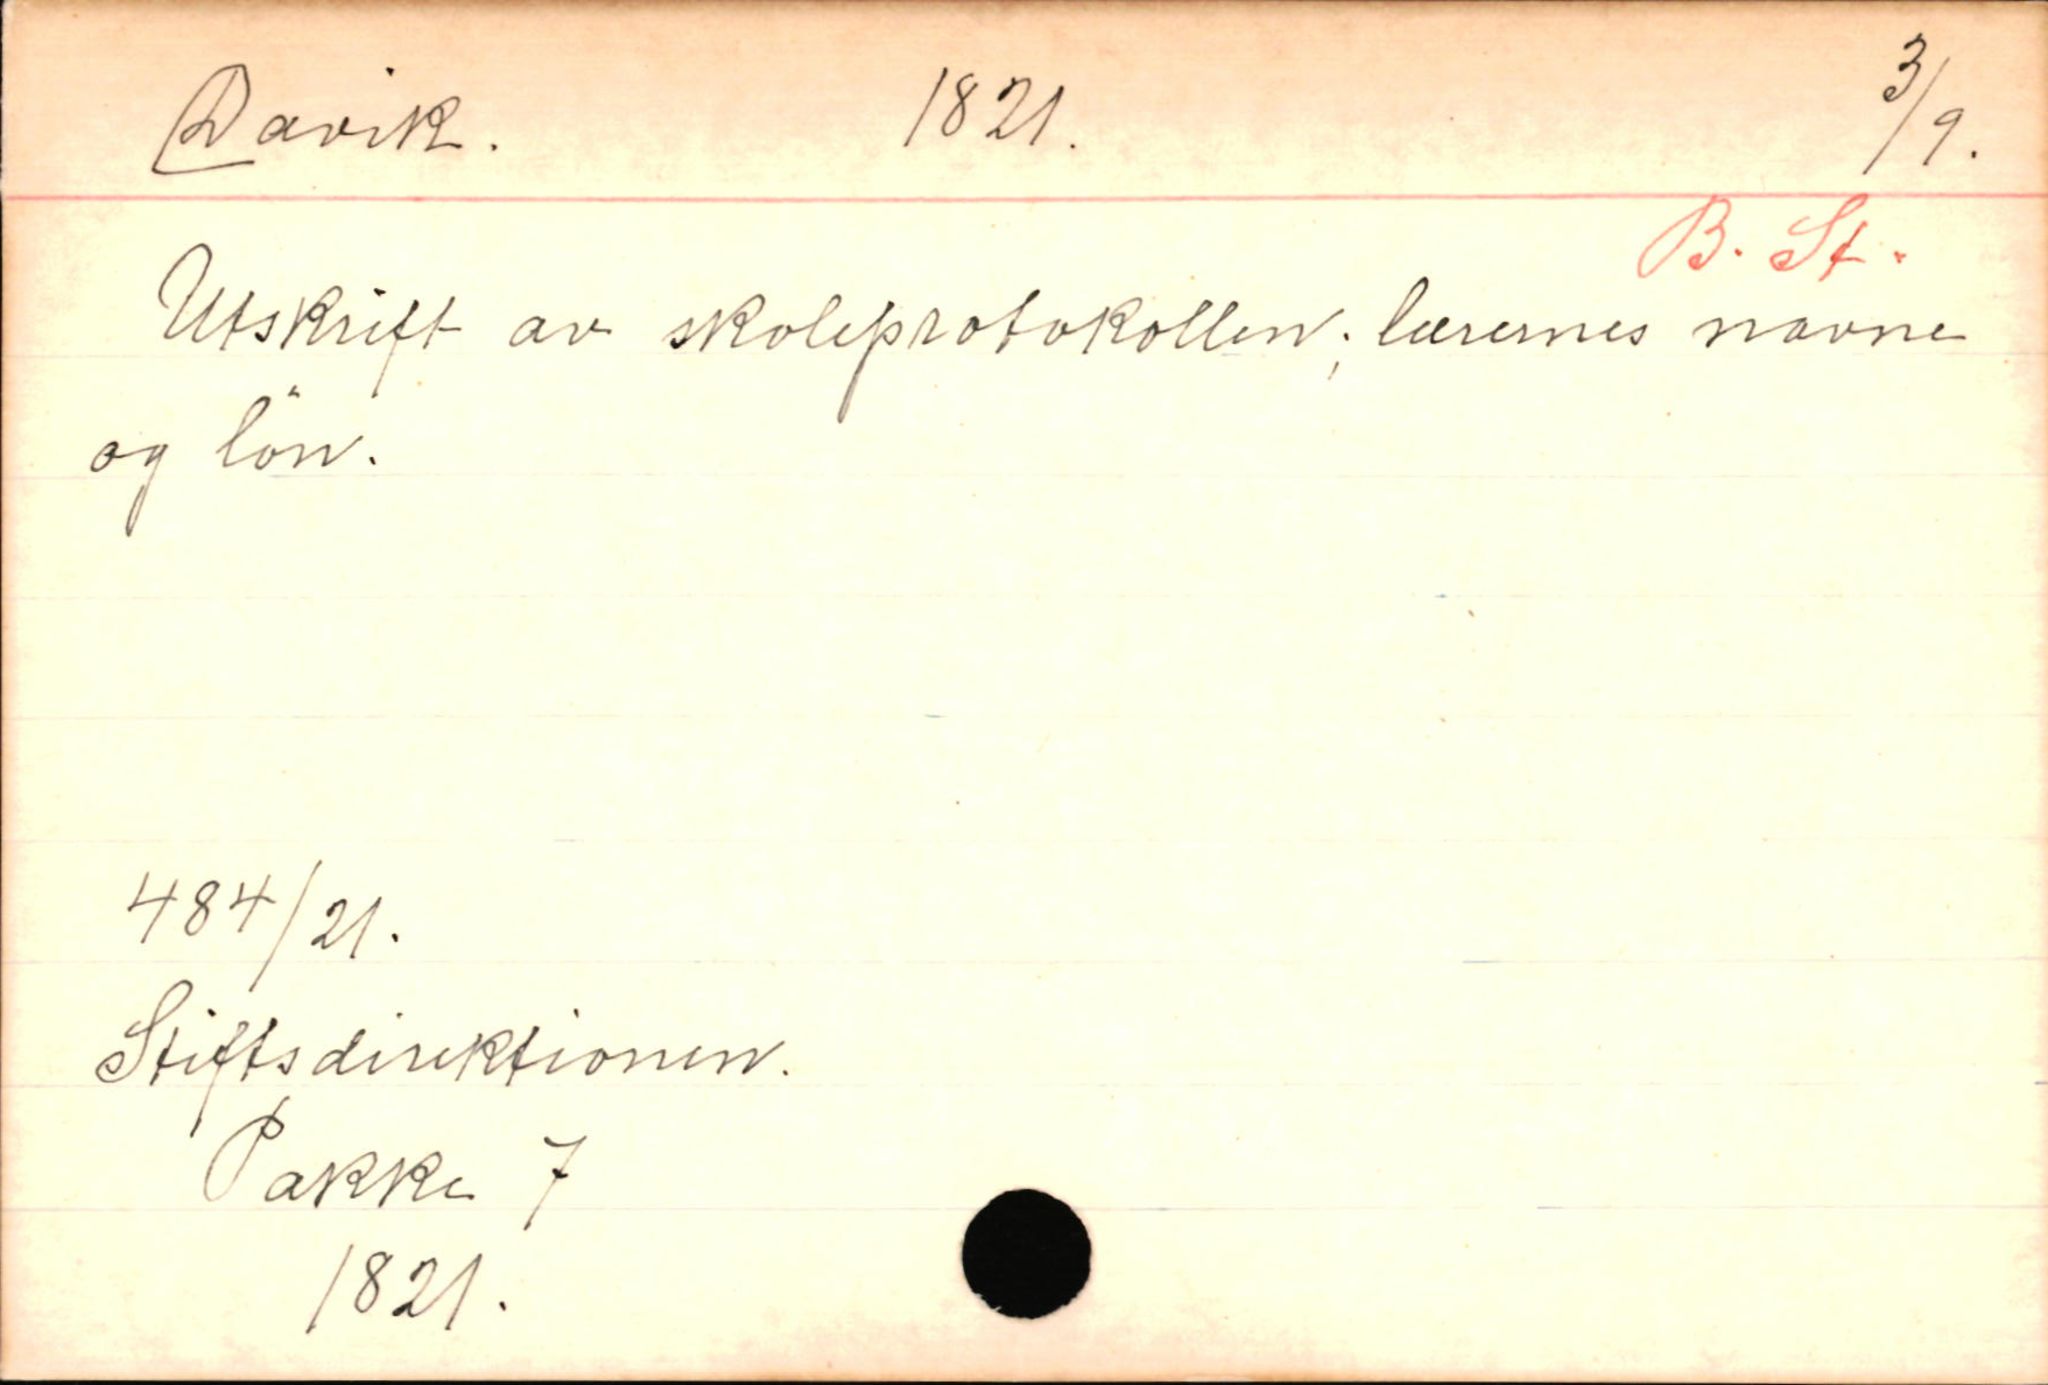 Davik. 1821. 3/9.
B. St.
Utskrift av skoleprotokollen; lærernes navne
og lön.
484/21.
Stiftsdirektionen.
Pakke 7
1821.